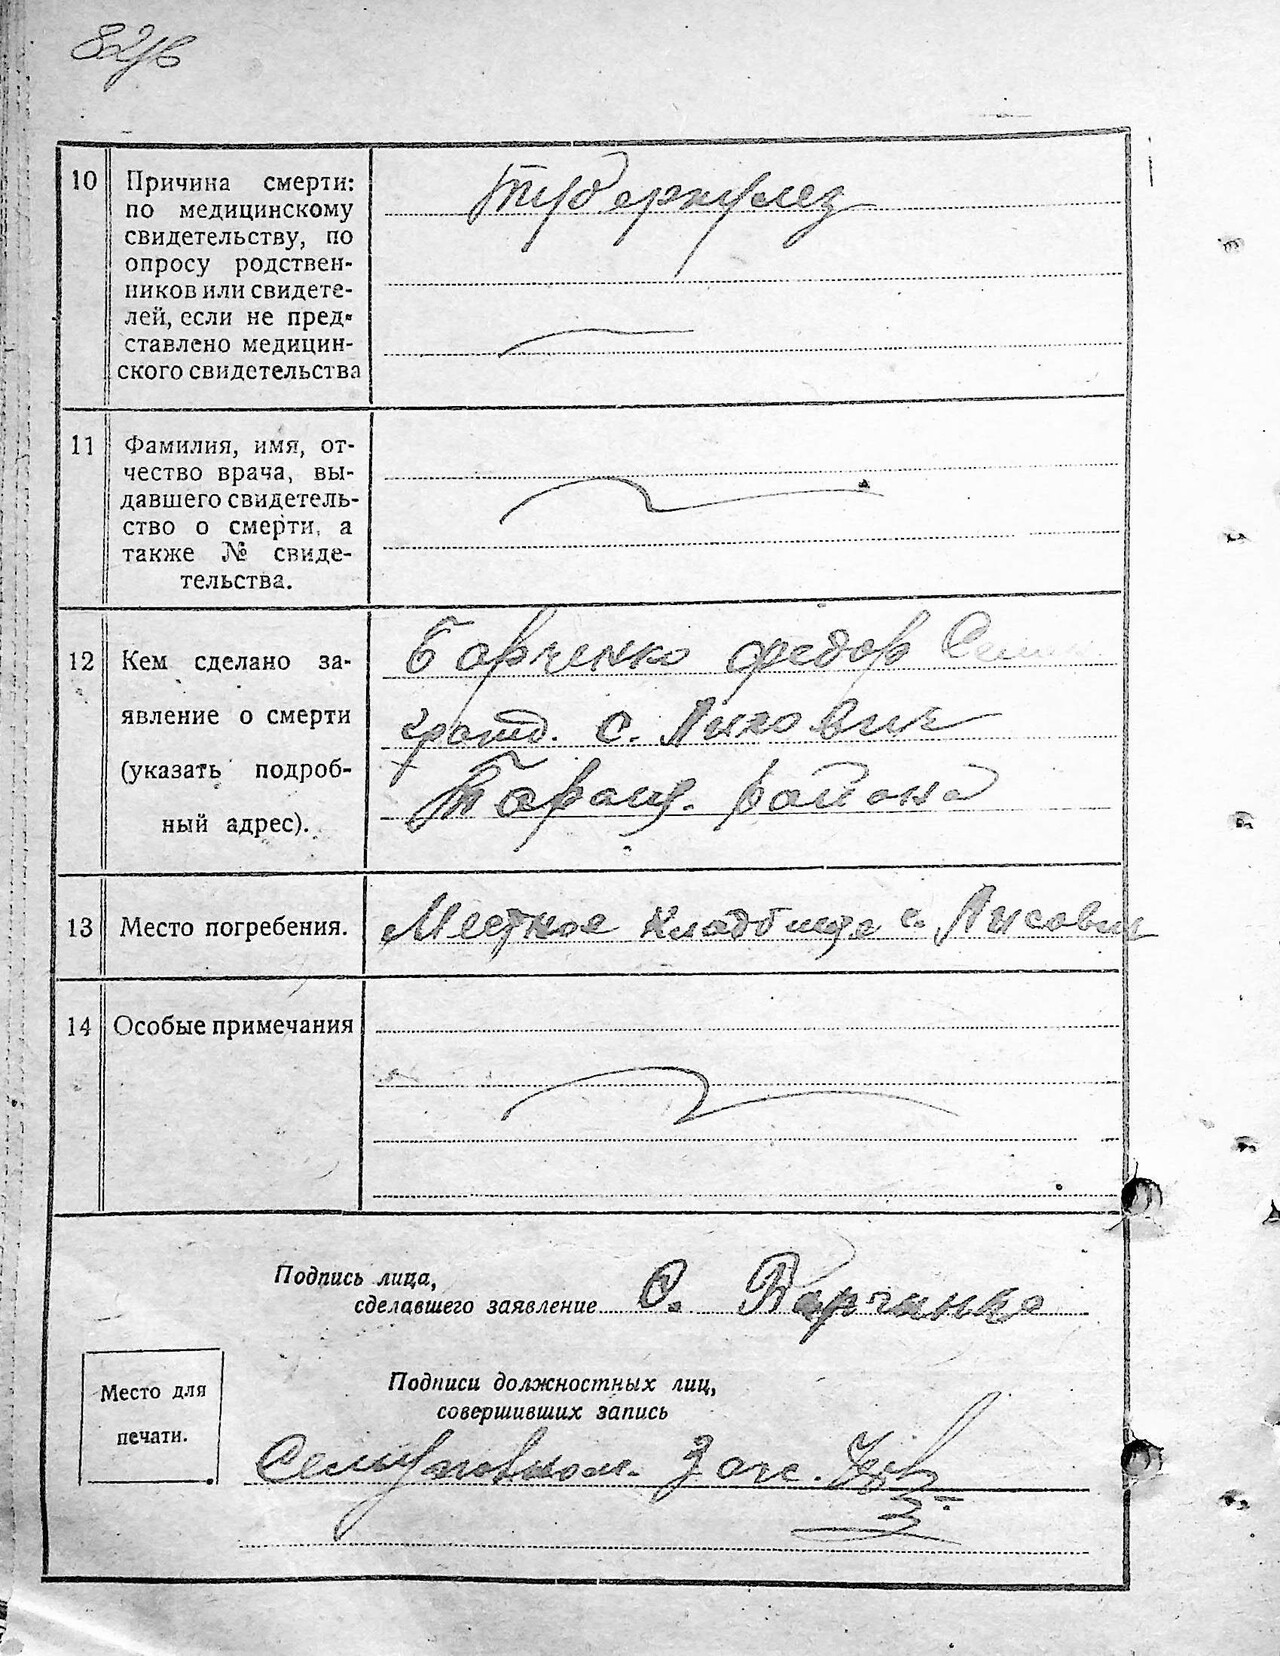 10 Причина смерти:
по медицинскому
свидетельству, по
опросу родствен-
ников или свидете-
лей, если не пред-
ставлено медицин-
ского свидетельства
Туберкулез
11 Фамилия, имя, от-
чество врача, вы-
давшего свидетель-
ство о смерти, а
также № свиде-
тельства.
12 Кем сделано за-
явление о смерти
(указать подроб-
ный адрес).
Борченко Федор
с. Лисович
Таращ. района
13 Место погребения.
Местное кладбище с. Лисович
14 Особые примечания
Подпись лица,
сделавшего заявление
Подписи должностных лиц,
совершивших запись
Место для
печати.